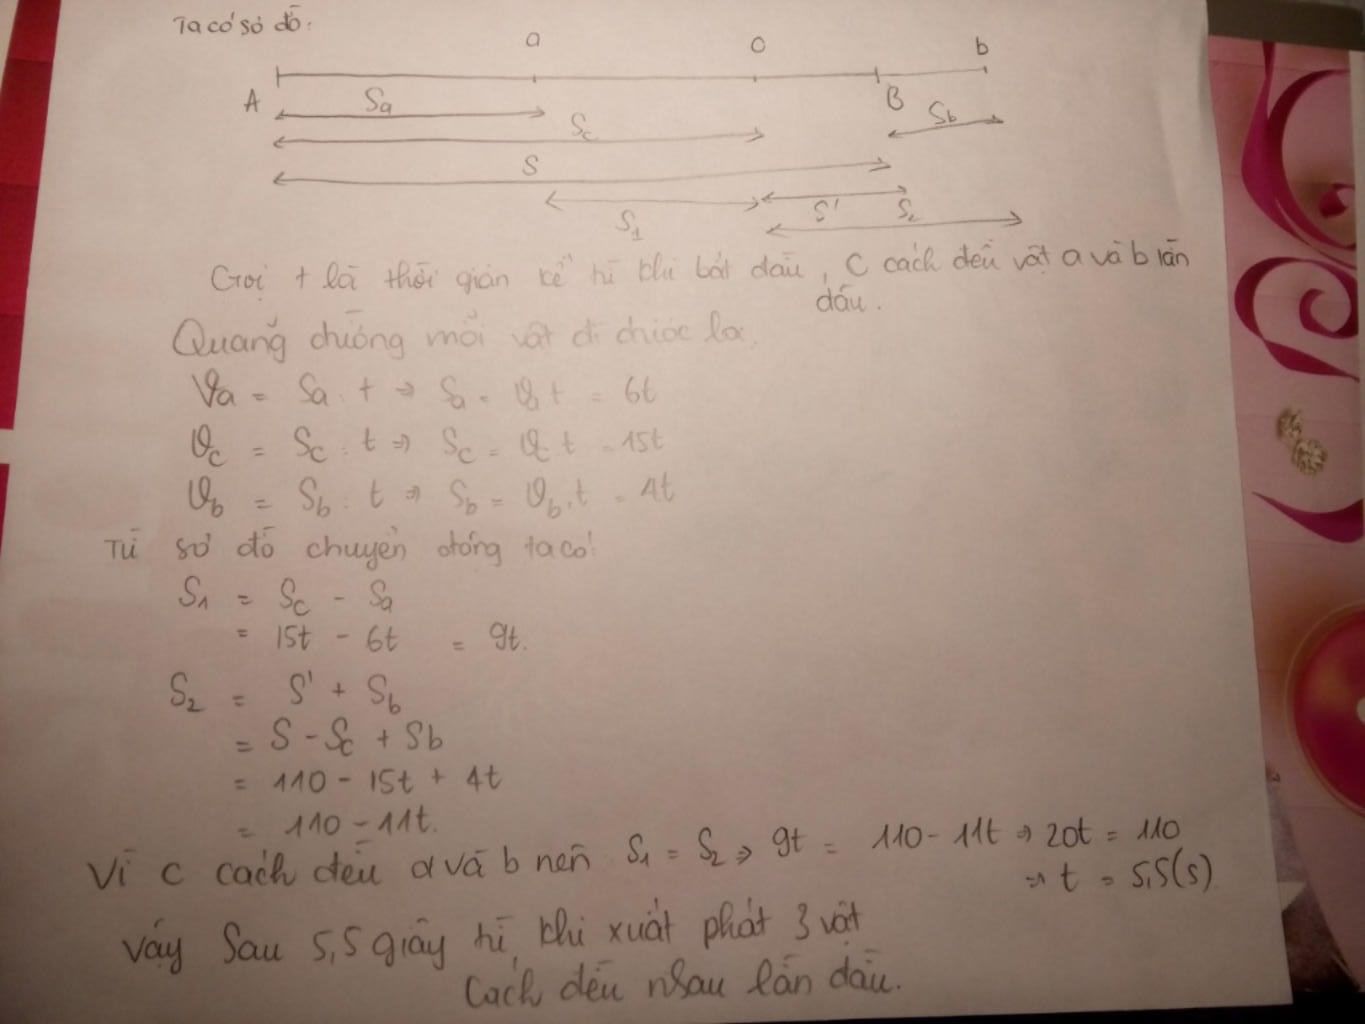 Ta có sơ đồ:
a c b
A B
Sa Sc Sb
S
S1 S' S2
Gọi t là thời gian kể từ khi bắt đầu, C cách đều vật a và b lần
đầu.
Quãng đường mỗi vật đi được là:
Va = Sa : t ⇒ Sa = Va t = 6t
Vc = Sc : t ⇒ Sc = Vc t = 15t
Vb = Sb : t ⇒ Sb = Vb.t = 4t
Từ sơ đồ chuyển động ta có:
S1 = Sc - Sa
= 15t - 6t = 9t.
S2 = S' + Sb
= S - Sc + Sb
= 110 - 15t + 4t
= 110 - 11t.
Vì c cách đều a và b nên S1 = S2 ⇒ 9t = 110 - 11t ⇒ 20t = 110
⇒ t = 5,5(s)
Vậy Sau 5,5 giây từ khi xuất phát 3 vật
Cách đều nhau lần đầu.